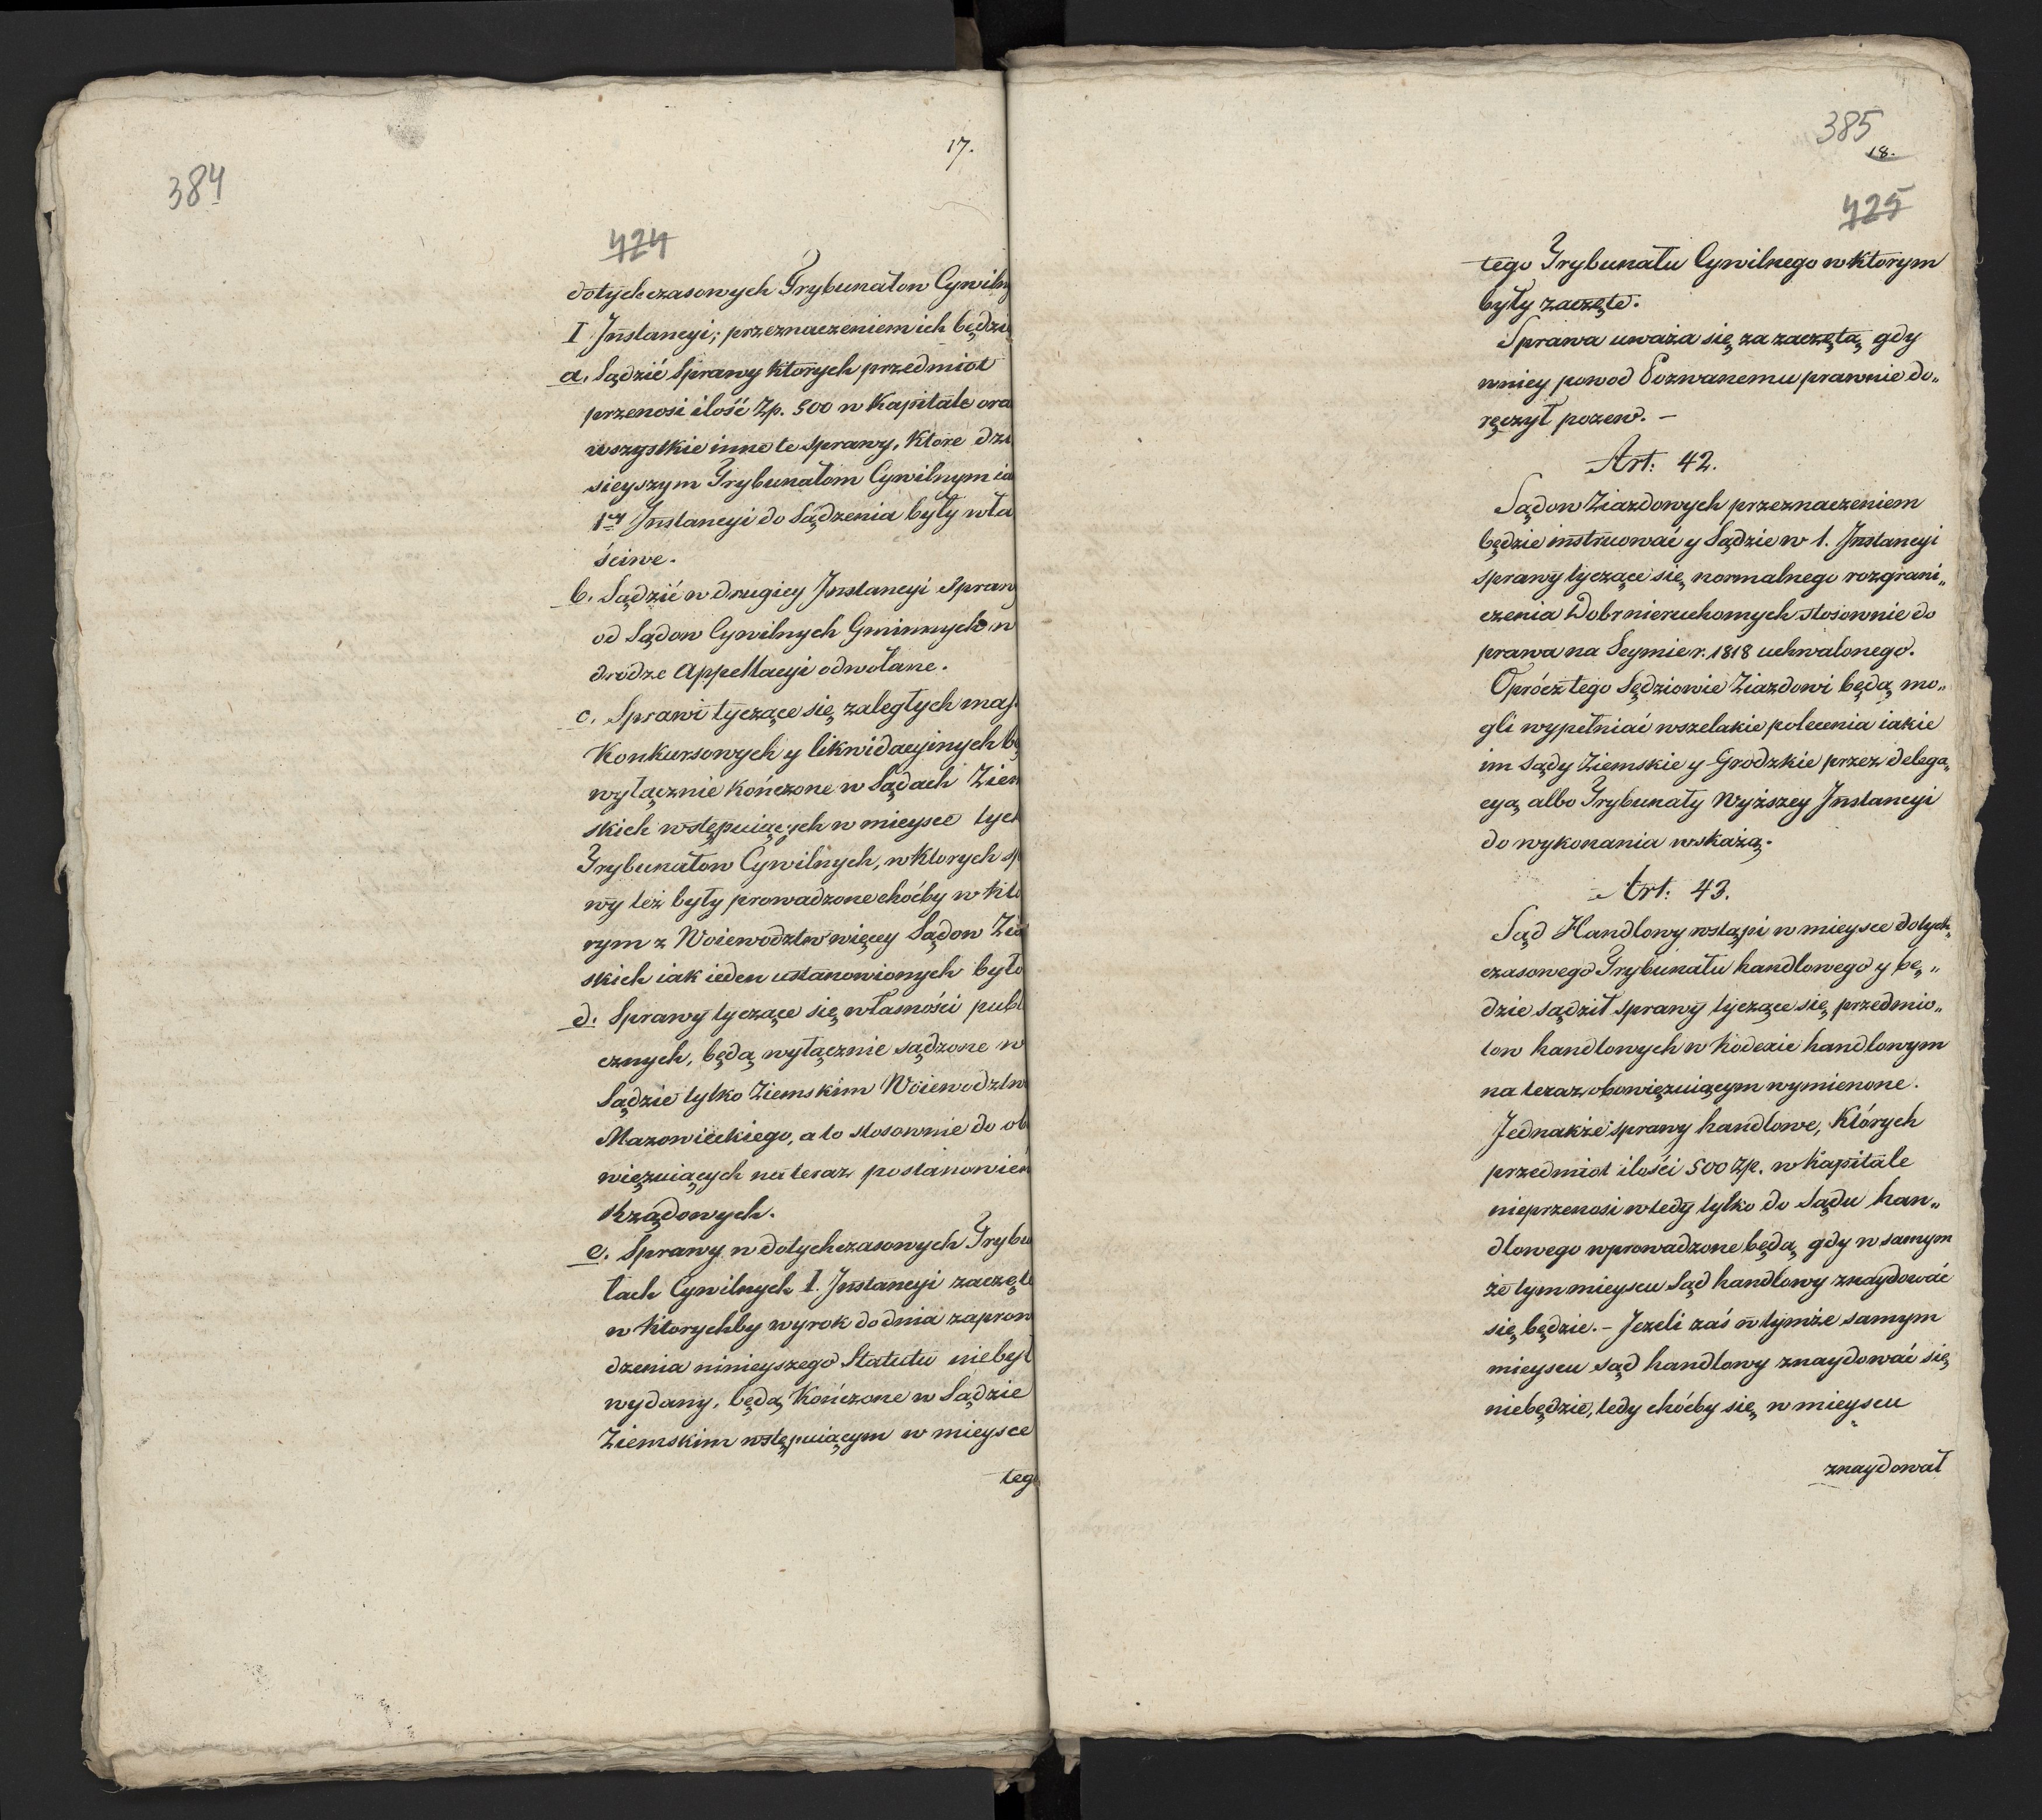 17.
384
424
dotychczasowych Trybunałow Cywiln
I Jnstancyi; przeznaczeniem ich będzi
a. Sądzić Sprawy ktorych przedmiot
przenosi ilość Zp. 500 w Kapitale ora
wszystkie inne te sprawy, Ktore dzi
sieyszym Trybunałom Cywilnym ia
1ey Jnstancyi do Sądzenia były wła
ściwe.
b. Sądzić w drugiey Jnstancyi Spraw
od Sądow Cywilnych Gminnych w
drodze Appellacyi odwołane.
c. Sprawi tyczące się zaległych mass
Konkursowych y likwidacyinych bę
wyłącznie kończone w Sądach Ziem
skich wstępuiących w mieysce tych
Trybunałow Cywilnych, w ktorych sp
wy też były prowadzone choćby w Kto
rym z Woiewodztw więcey Sądow Zie
skich iak ieden ustanowionych było
d. Sprawy tyczące się własności publ
cznych, będą wyłącznie sądzone w
Sądzie tylko Ziemskim Woiewodztw
Mazowieckiego, a to stosownie do ob
więzuiących na teraz postanowień
Rządowych.
e. Sprawy w dotychczasowych Trybu
łach Cywilnych I. Jnstancyi zaczęte
w ktorychby wyrok do dnia zaprow
dzenia ninieyszego Statutu niebył
wydany, będą Kończone w Sądzie
Ziemskim wstępuiącym w mieysce
teg
385
18.
425
tego Trybunału Cywilnego w ktorym
były zaczęte.
Sprawa uważa się za zaczętą gdy
wniey powod Pozwanemu prawnie do„
ręczył pozew. –
Art: 42.
Sądow Ziazdowych przeznaczeniem
będzie instruować y Sądzie w 1. Jnstancyi
sprawy tyczące się normalnego rozgrani„
czenia Dobr nieruchomych stosownie do
prawa na Seymie r. 1818 uchwalonego.
Oprócz tego Sędziowie Ziazdowi będą mo„
gli wypełniać wszelakie polecenia iakie
im Sądy Ziemskie y Grodzkie przez delega„
cyą albo Trybunały Wyższey Jnstancyi
do wykonania wskażą.
Art: 43.
Sąd Handlowy wstąpi w mieysce dotych„
czasowego Trybunału handlowego y bę„
dzie sądził sprawy tyczące się przedmio„
tow handlowych w Kodexie handlowym
na teraz obowięzuiącym wymienone.
Jednakże sprawy handlowe, Których
przedmiot ilości 500 Zp. w Kapitale
nieprzenosi wtedy tylko do Sądu han„
dlowego wprowadzone będą gdy w samym
że tym mieyscu Sąd handlowy znaydować
się będzie. – Jezeli zaś w tymże samym
mieyscu sąd handlowy znaydować się
niebędzie, tedy choćby się w mieyscu
znaydował